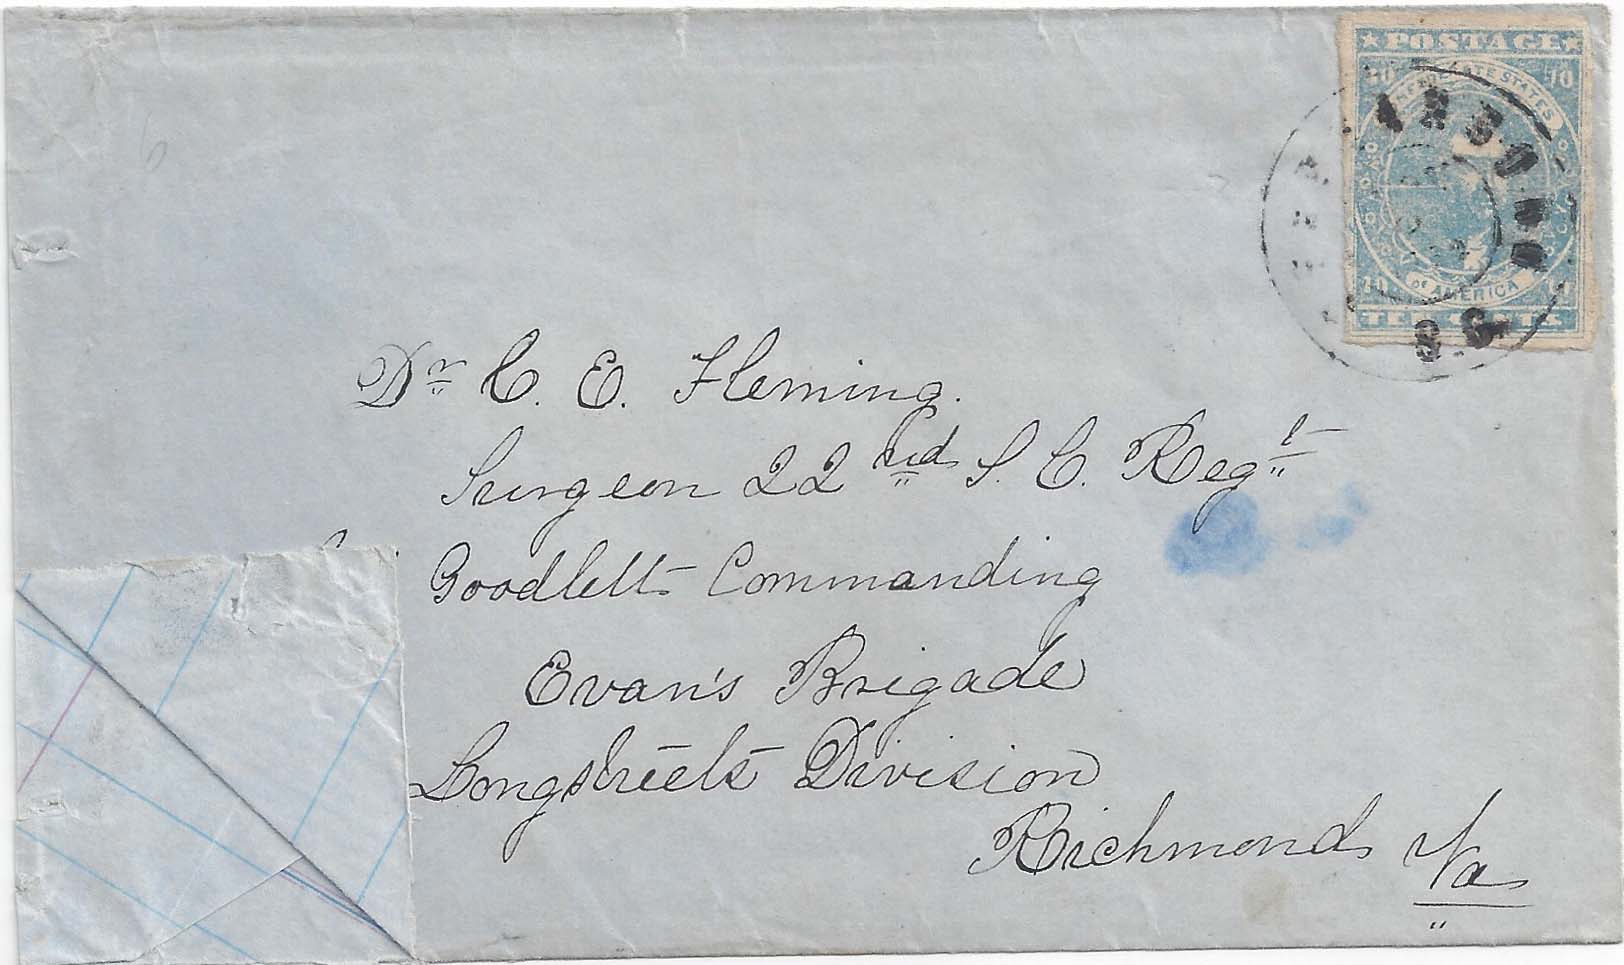 ★ POSTAGE ★
10 10
CONFEDERATE STATES
of AMERICA
10
TEN CENTS.
S.C.
Dr C. E. Fleming.
Surgeon 22nd S. C. Regt
Goodlett Commanding
Evan's Brigade
Longstreets Division
Richmond Va